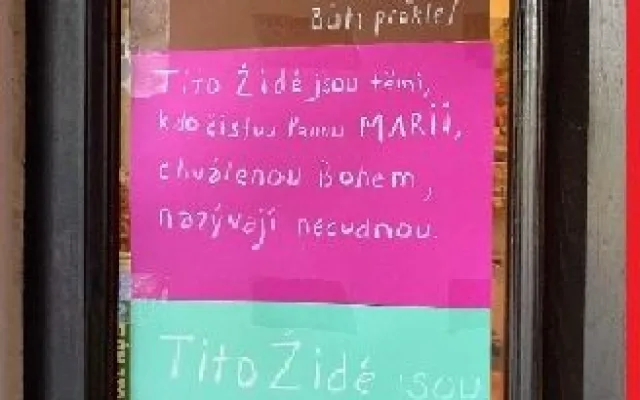 Bůh proklel
Tito Židé jsou těmi,
kdo čistou Pannu MARII,
chválenou Bohem,
nazývají necudnou.
Tito Židé jsou